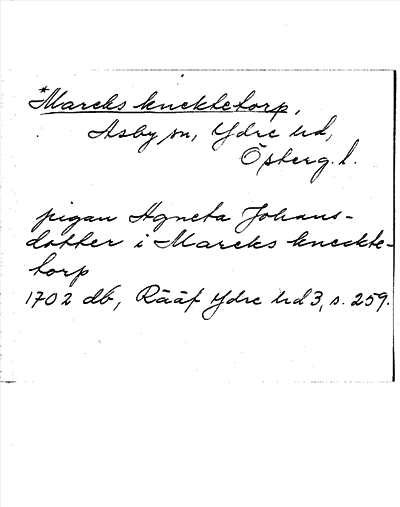 *Mareks knektetorp,
Asby sn, Ydre hd,
Österg. l.
pigan Agneta Johans-
dotter i Mareks kneckte-
torp
1702 db, Rääf Ydre hd 3, s. 259.